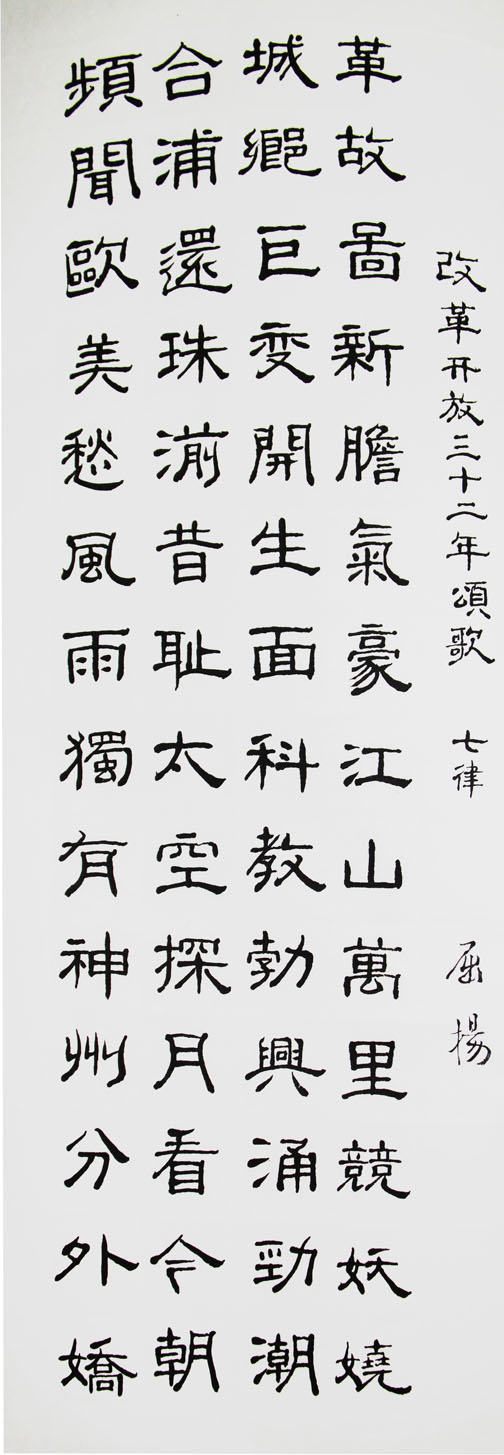 改革开放三十二年頌歌 七律 屈揚
革故啚新膽氣豪江山萬里競妖嬈
城鄉巨變開生面科教勃興涌勁潮
合浦還珠湔昔耻太空探月看今朝
頻聞歐美愁風雨獨有神州分外嬌